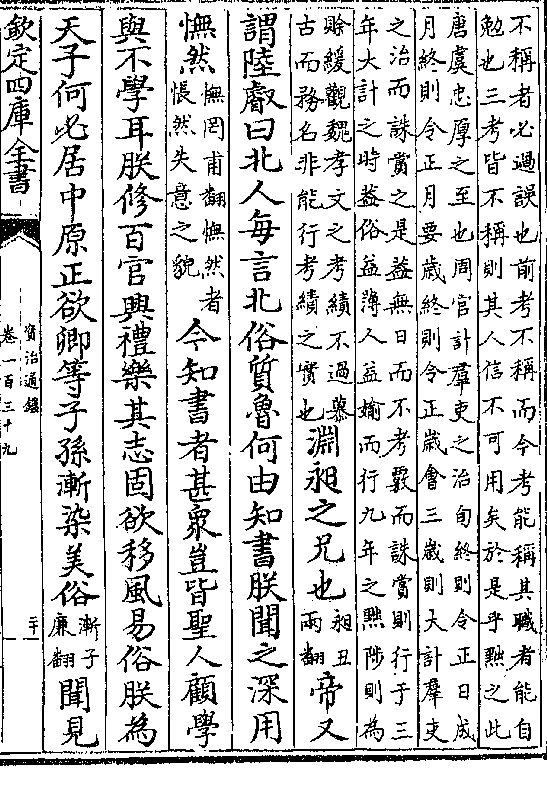 不稱者必過誤也前考不稱而今考能稱其職者能自
勉也三考皆不稱則其人信不可用矣於是乎黜之此
唐虞忠厚之至也周官計羣吏之治旬終則令正日成
月終則令正月要歲終則令正歲會三歲則大計羣吏
之治而誅賞之是葢無日而不考覈而誅賞則行于三
年大計之時葢俗益薄人益媮而行九年之黜陟則為
賒緩觀魏孝文之考績不過慕
古而務名非能行考績之實也
淵昶之兄也
昶丑
兩翻
帝又
謂陸叡曰北人每言北俗質魯何由知書朕聞之深用
憮然
憮罔甫翻憮然者
悵然失意之貌
今知書者甚衆豈皆聖人顧學
與不學耳朕修百官興禮樂其志固欲移風易俗朕為
天子何必居中原正欲卿等子孫漸染美俗
漸子
廉翻
聞見
欽定四庫全書
資治通鑑
卷一百三十九
二十